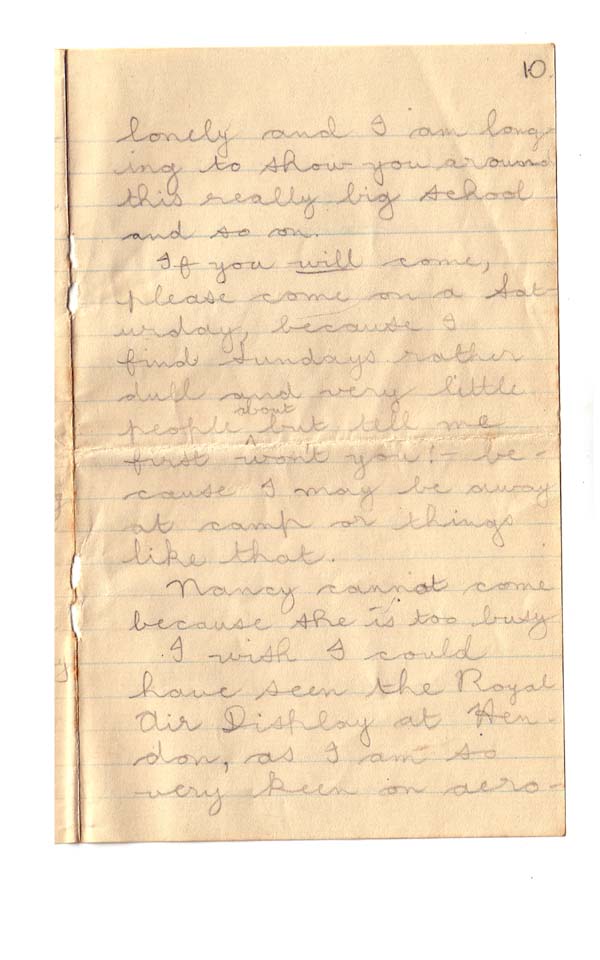 10.
lonely and I am long-
ing to show you around
this really big school
and so on.
If you will come,
please come on a Sat-
urday, because I
find Sundays rather
dull and very little
about
people but tell me
first won't you! - be-
cause I may be away
at camp or things
like that.
Nancy cannot come
because she is too busy
I wish I could
have seen the Royal
Air Display at Hen-
don, as I am so
very keen on aero-